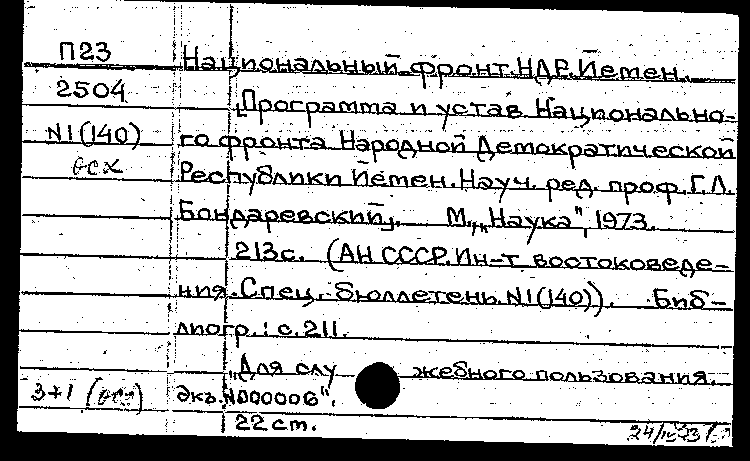 П23
Национальный фронт.НДР.Йемен.
2504
„Программа и устав Национально-
N1(140)
го фронта Народной Демократической
осх
Республики Йемен.Науч. ред. проф.Г.Л.
Бондаревский„. М.,„Наука", 1973.
213с. (АН СССР.Ин-т востоковеде-
ния.Спец. бюллетень.N1(140)). Биб-
лиогр.: с.211.
„Для служебного пользования.
3+1 (осх) экз.N000006".
22 ст.